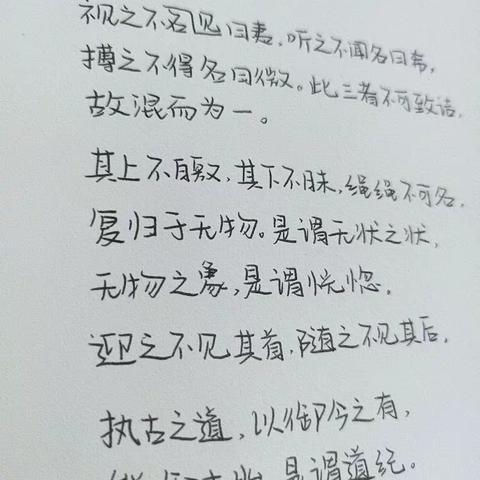 视之不名见曰夷,听之不闻名曰希,
搏之不得名曰微。此三者不可致诘,
故混而为一。
其上不皦,其下不昧,绳绳不可名,
复归于无物。是谓无状之状,
无物之象,是谓恍惚.
迎之不见其首,随之不见其后.
执古之道,以御今之有,
是谓道纪。